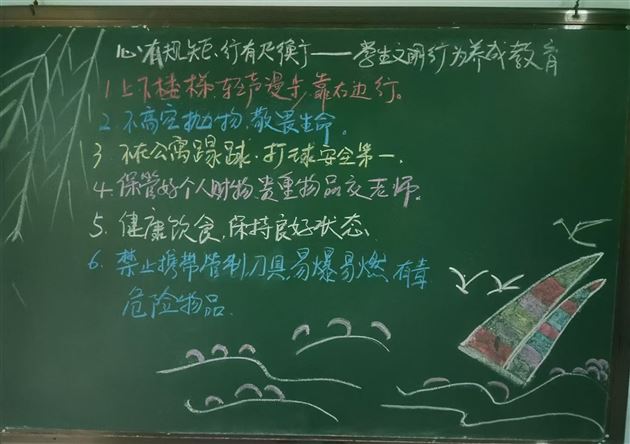 心有规矩、行有尺衡——学生文明行为养成教育
1 上下楼梯、轻声漫步、靠右边行。
2 不高空抛物、敬畏生命。
3 不在公寓踢球、打球安全第一.
4、保管好个人财物贵重物品交老师。
5、健康饮食、保持良好状态
6、禁止携带管制刀具、易爆易燃、有毒
危险物品.